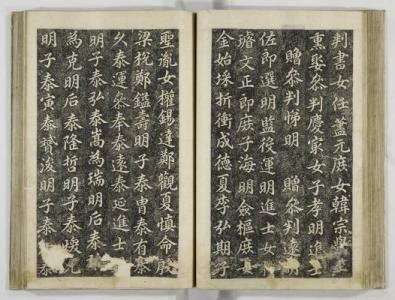 判書女任蓋元庶女韓宗
熏娶叅判慶家女子孝明進士
贈叅判悌明 贈叅判遠明
佐即選明監役運明進士女
瞻文正即庶子海明僉樞
金始埰折衝成德夏李弘期子
聖胤女權錫達鄭觀夏慎命
梁梲鄭鎰壽明子泰胄泰有泰
久泰運叅奉泰遠泰延進士
明子泰弘泰嵩為瑞明后泰
為克明后泰隆哲明子泰峻
明子泰寅泰贊浚明子泰